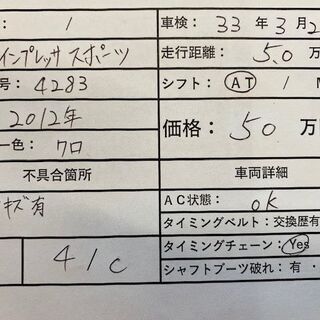 : 1
車検: 33年3月2
インプレッサ スポーツ
走行距離: 5.0万
号: 4283
シフト: AT /
2012年
価格: 50万
ー色: クロ
不具合箇所
車両詳細
キズ有
AC状態: OK
タイミングベルト:交換歴有
タイミングチェーン: Yes
41C
シャフトブーツ破れ:有・